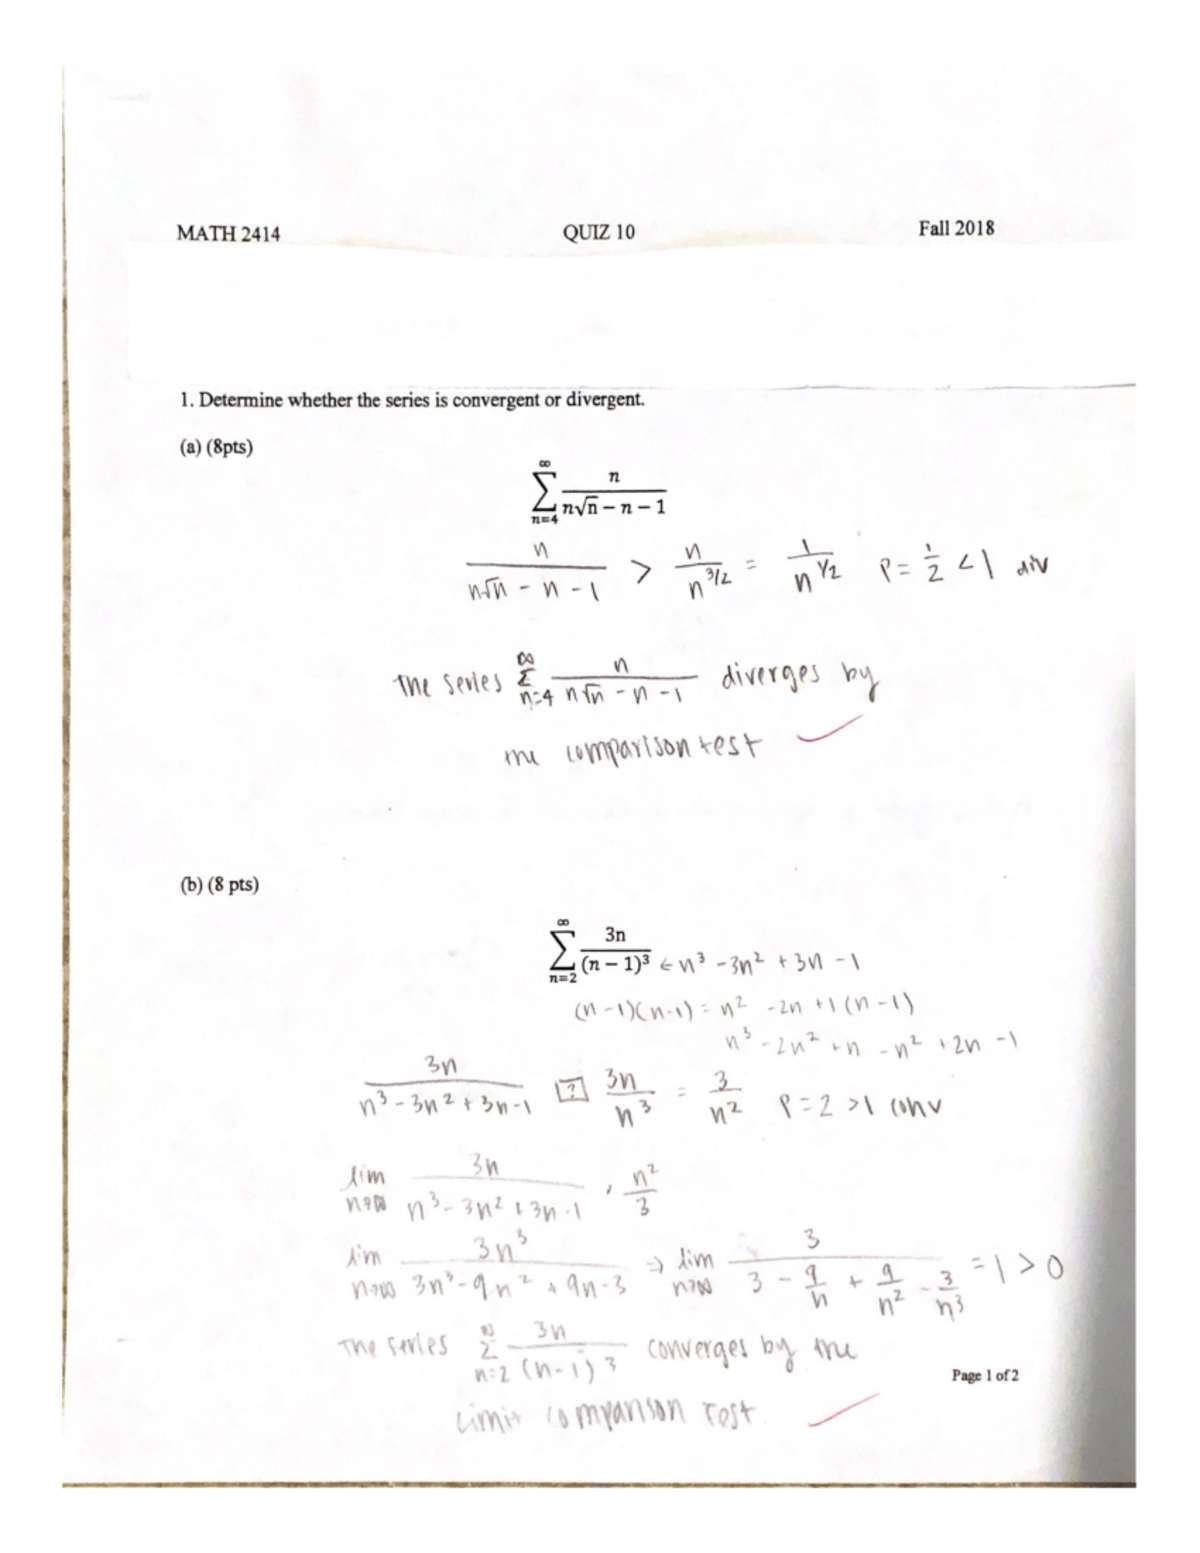 MATH 2414 QUIZ 10 Fall 2018
1. Determine whether the series is convergent or divergent.
(a) (8pts)
∑_{n=4}^{∞} n/(n√n − n − 1)
n/(n√n − n − 1) > n/n^{3/2} = 1/n^{1/2} P = 1/2 < 1 div
The series ∑_{n=4}^{∞} n/(n√n − n − 1) diverges by
the comparison test
(b) (8 pts)
∑_{n=2}^{∞} 3n/(n − 1)³ ← n³ − 3n² + 3n − 1
(n−1)(n−1) = n² − 2n + 1 (n−1)
n³ − 2n² + n − n² + 2n − 1
3n/(n³ − 3n² + 3n − 1) [?] 3n/n³ = 3/n² P = 2 > 1 conv
lim_{n→∞} 3n/(n³ − 3n² + 3n − 1) · n²/3
lim_{n→∞} 3n³/(3n³ − 9n² + 9n − 3) ⇒ lim_{n→∞} 3/(3 − 9/n + 9/n² − 3/n³) = 1 > 0
The series ∑_{n=2}^{∞} 3n/(n−1)³ converges by the
Page 1 of 2
Limit Comparison Test.